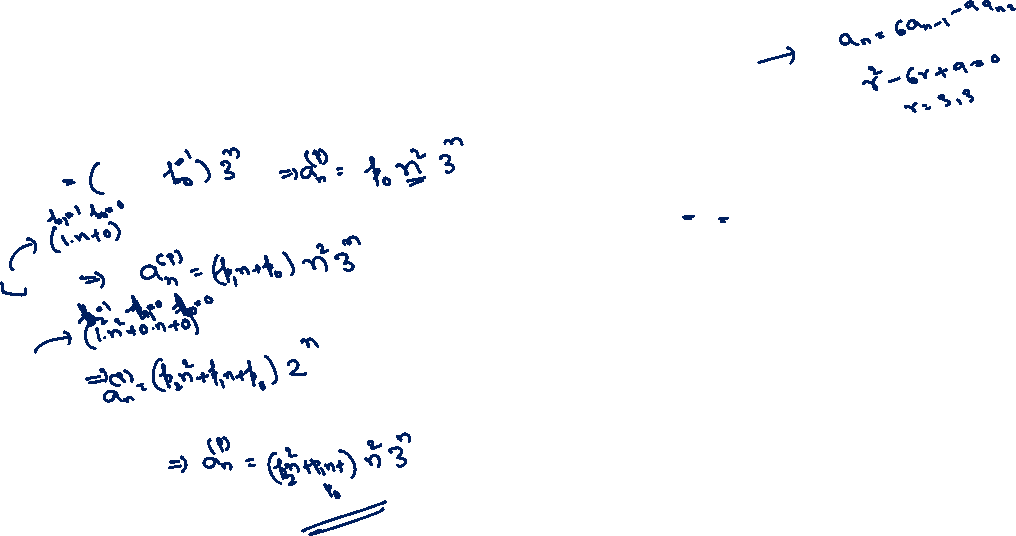 → aₙ = 6aₙ₋₁ - 9aₙ₋₂
r² - 6r + 9 = 0
r = 3, 3
= ( b₀=1) 3ⁿ ⇒ aₙ⁽ᵖ⁾ = p₀ n² 3ⁿ
b₁=1 b₀=0
(1.n+0)
⇒ aₙ⁽ᵖ⁾ = (p₁n+p₀) n² 3ⁿ
b₂=1 b₁=0 b₀=0
(1.n²+0.n+0)
⇒ aₙ⁽ᵖ⁾ = (p₂n²+p₁n+p₀) 2ⁿ
⇒ aₙ⁽ᵖ⁾ = (p₂n²+p₁n+p₀) n² 3ⁿ